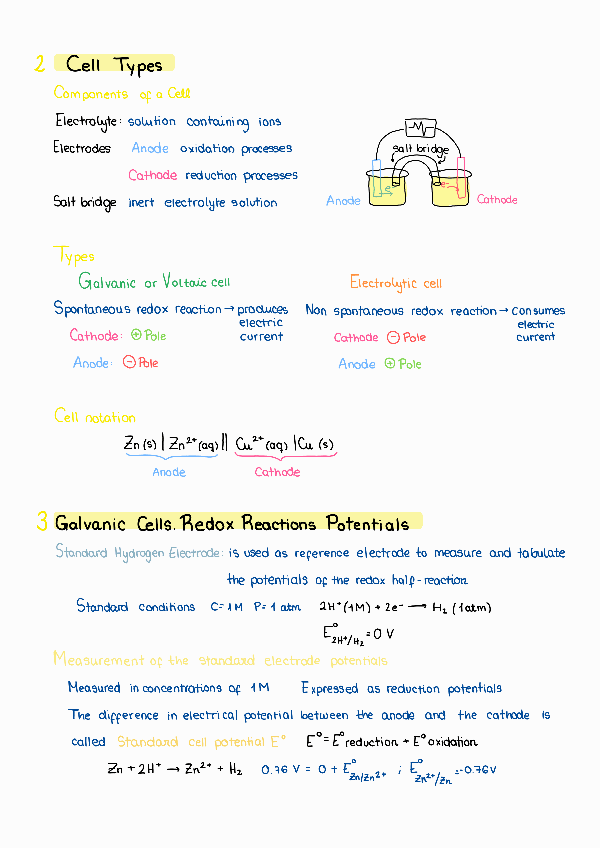 2 Cell Types
Components of a Cell
Electrolyte: solution containing ions
Electrodes Anode oxidation processes
Cathode reduction processes
Salt bridge inert electrolyte solution
salt bridge
e⁻ e⁻
Anode Cathode
Types
Galvanic or Voltaic cell
Spontaneous redox reaction → produces
electric
current
Cathode: ⊕ Pole
Anode: ⊖ Pole
Electrolytic cell
Non spontaneous redox reaction → consumes
electric
current
Cathode ⊖ Pole
Anode ⊕ Pole
Cell notation
Zn (s) | Zn²⁺ (aq) || Cu²⁺ (aq) | Cu (s)
Anode Cathode
3 Galvanic Cells. Redox Reactions Potentials
Standard Hydrogen Electrode: is used as reference electrode to measure and tabulate
the potentials of the redox half-reaction
Standard conditions C=1M P=1 atm 2H⁺(1M) + 2e⁻ → H₂ (1atm)
E°2H⁺/H₂ = 0 V
Measurement of the standard electrode potentials
Measured in concentrations of 1M Expressed as reduction potentials
The difference in electrical potential between the anode and the cathode is
called Standard cell potential E° E° = E° reduction + E° oxidation
Zn + 2H⁺ → Zn²⁺ + H₂ 0.76 V = 0 + E°Zn/Zn²⁺ ; E°Zn²⁺/Zn = -0.76V